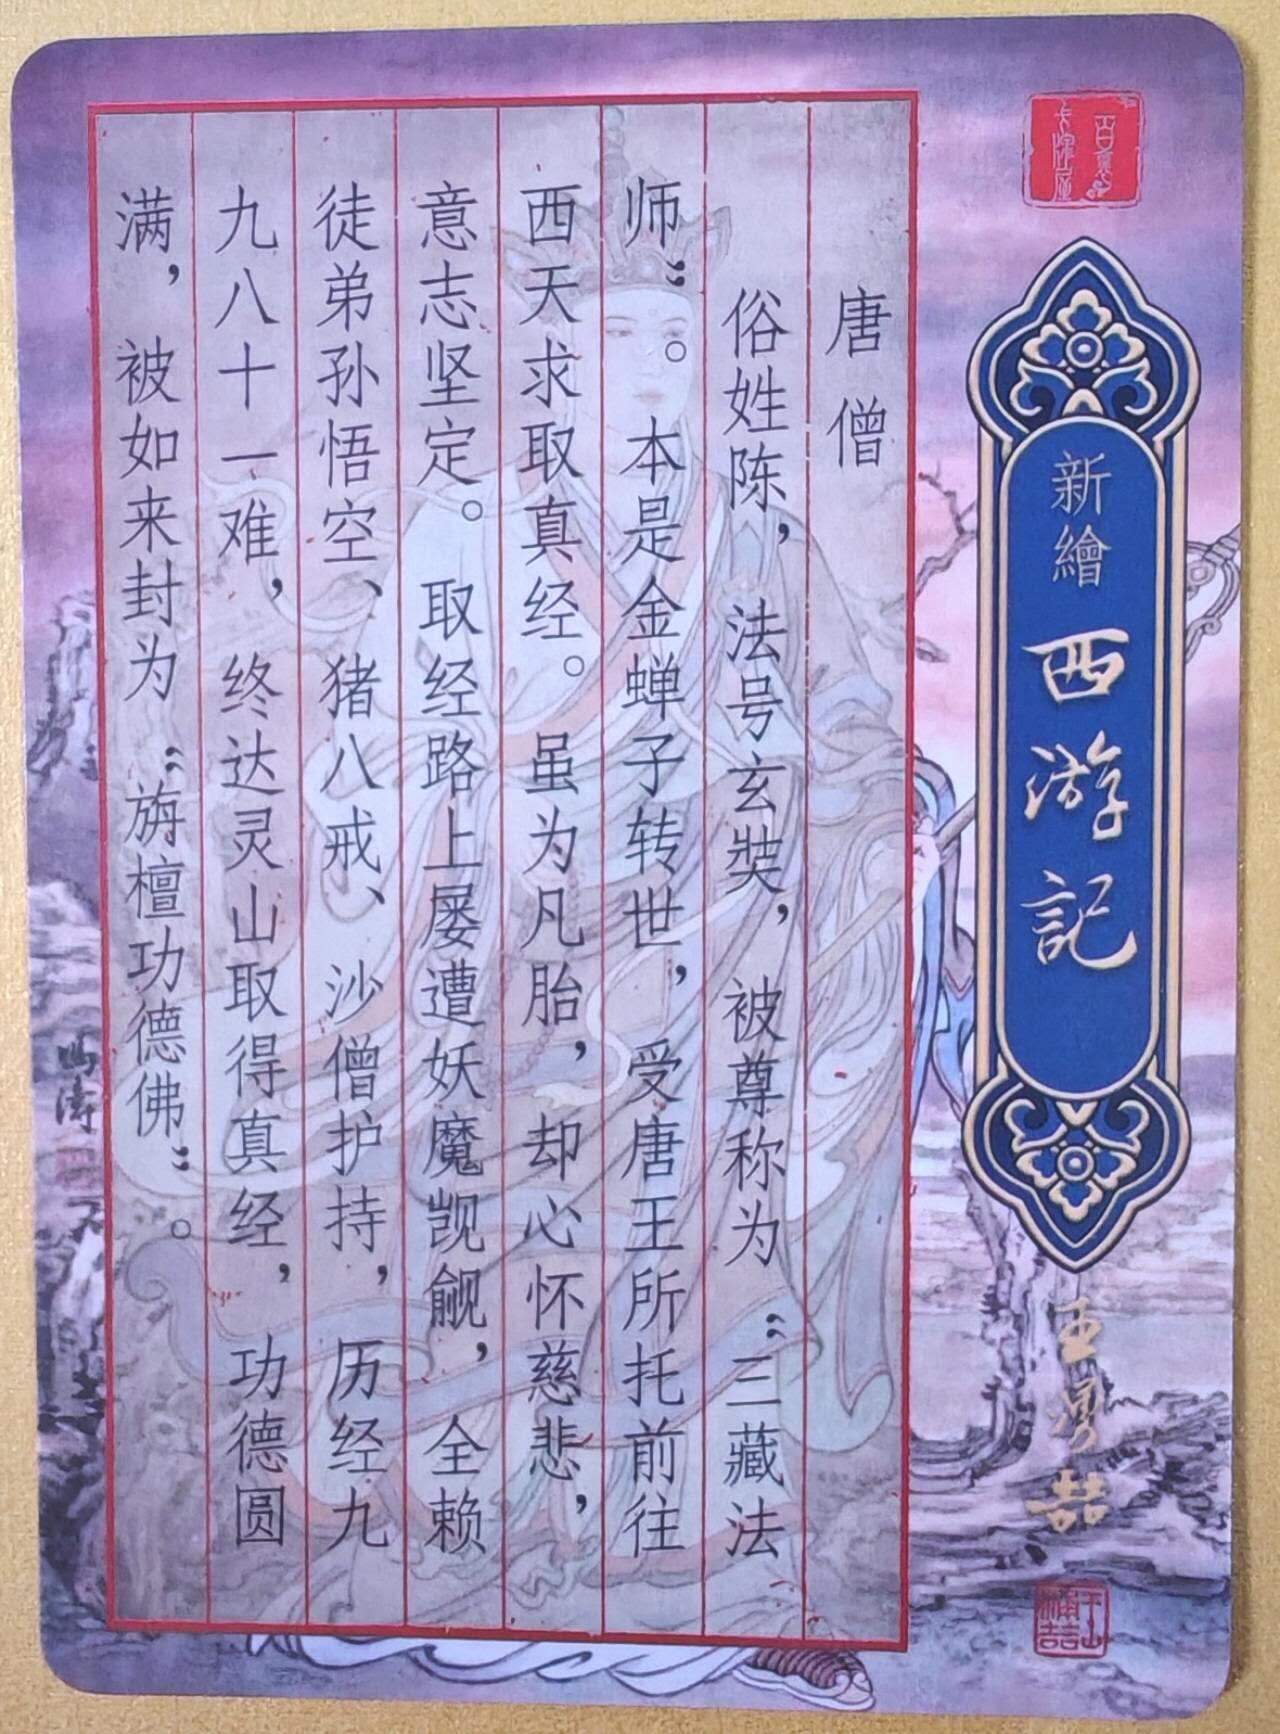 新繪
西游記
唐僧
俗姓陈，法号玄奘，被尊称为“三藏法
师”。本是金蝉子转世，受唐王所托前往
西天求取真经。虽为凡胎，却心怀慈悲，
意志坚定。取经路上屡遭妖魔觊觎，全赖
徒弟孙悟空、猪八戒、沙僧护持，历经九
九八十一难，终达灵山取得真经，功德圆
满，被如来封为“旃檀功德佛”。